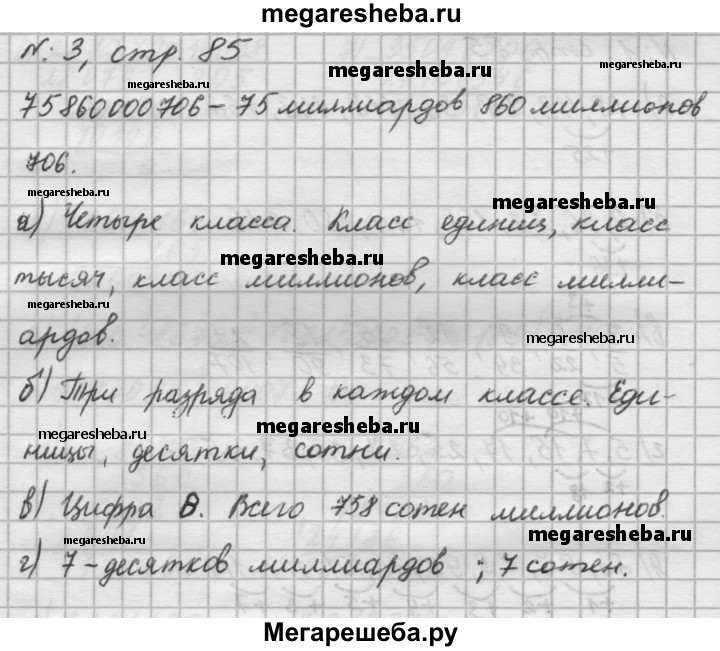 megaresheba.ru
N: 3, стр. 85
megaresheba.ru
75860000706 – 75 миллиардов 860 миллионов
706.
megaresheba.ru
megaresheba.ru
а) Четыре класса. Класс единиц, класс
megaresheba.ru
тысяч, класс миллионов, класс милли-
megaresheba.ru
ардов.
megaresheba.ru
б) Три разряда в каждом классе. Еди-
megaresheba.ru
megaresheba.ru
ницы, десятки, сотни.
в) Цифра 8. Всего 758 сотен миллионов.
megaresheba.ru
megaresheba.ru
г) 7 – десятков миллиардов ; 7 сотен.
Мегарешеба.ру